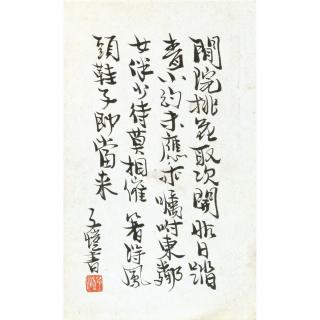 閒院桃花取次開昨日踏
青小約未應乖囑咐東鄰
女伴少待莫相催著得鳳
頭鞋子即當来
子愷書